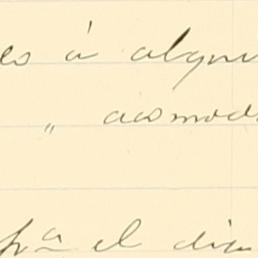 es á alqui
" acomod
pª el die